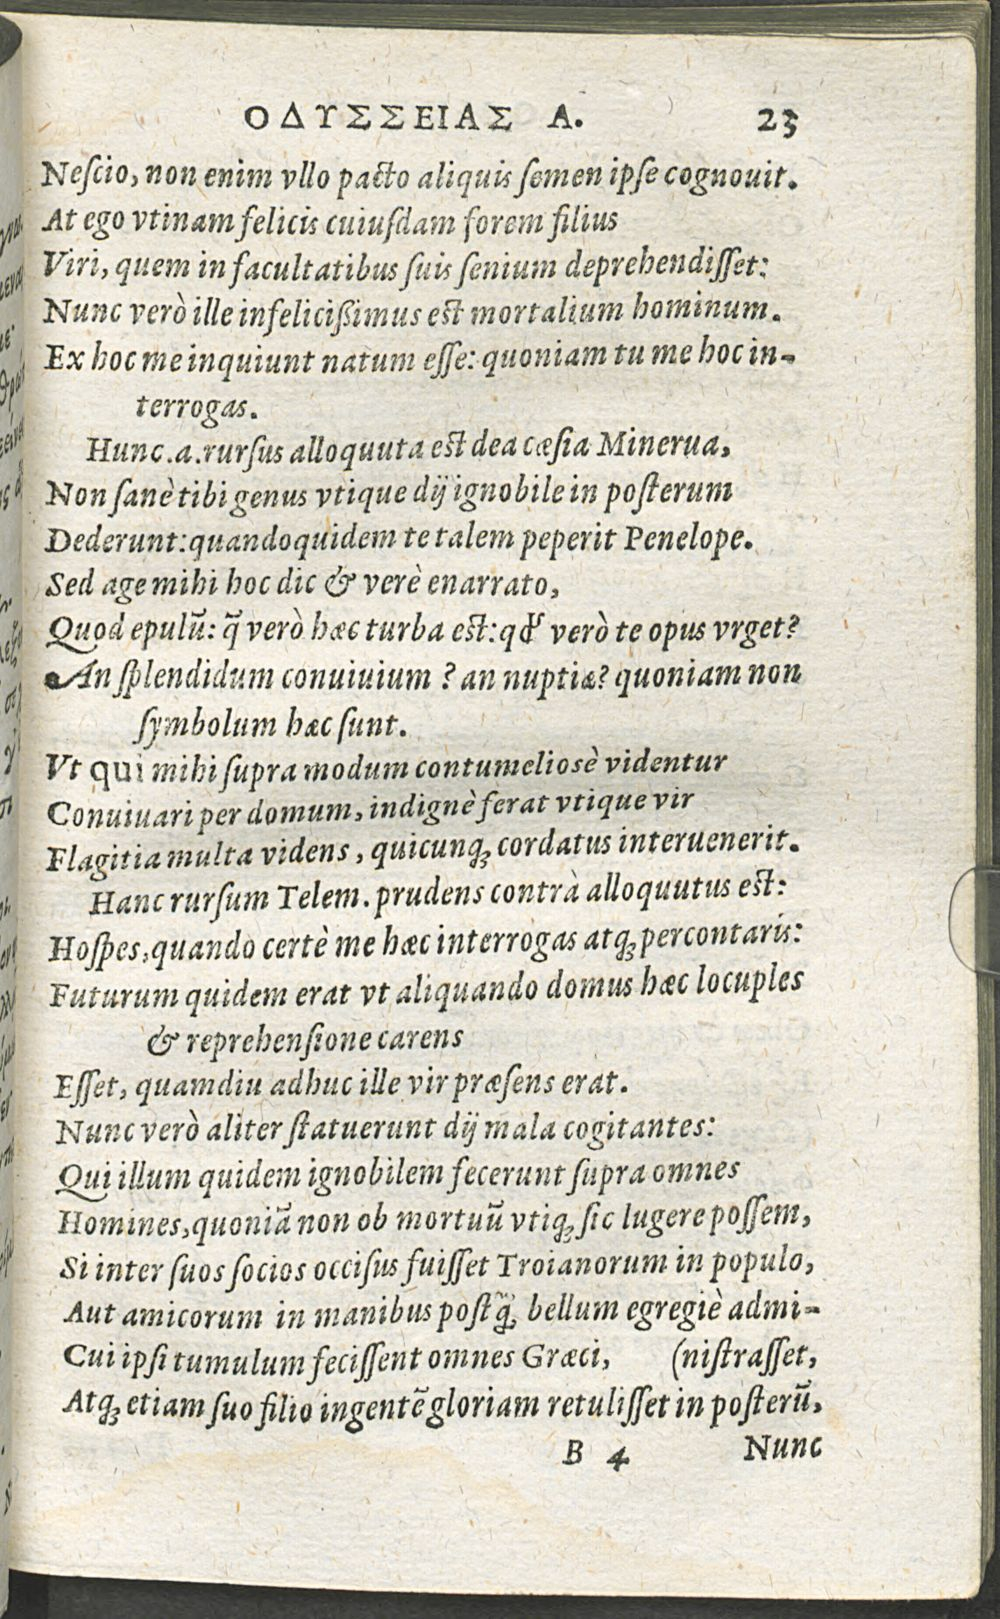 ΟΔΥΣΣΕΙΑΣ Α. 23
Neſcio, non enim vllo pacto aliquis ſemen ipſe cognouit.
At ego vtinam felicis cuiuſdam forem filius
Viri, quem in facultatibus ſuis ſenium deprehendiſſet:
Nunc verò ille infelicißimus eſt mortalium hominum.
Ex hoc me inquiunt natum eſſe: quoniam tu me hoc in-
terrogas.
Hunc.a.rurſus alloquuta eſt dea cæſia Minerua,
Non ſanè tibi genus vtique dij ignobile in poſterum
Dederunt: quandoquidem te talem peperit Penelope.
Sed age mihi hoc dic & verè enarrato,
Quod epulũ: q̃ verò hæc turba eſt: qđ verò te opus vrget?
An ſplendidum conuiuium? an nuptiæ? quoniam non
ſymbolum hæc ſunt.
Vt qui mihi ſupra modum contumelioſè videntur
Conuiuari per domum, indignè ferat vtique vir
Flagitia multa videns, quicunq; cordatus interuenerit.
Hanc rurſum Telem. prudens contrà alloquutus eſt:
Hoſpes, quando certè me hæc interrogas atq; percontaris:
Futurum quidem erat vt aliquando domus hæc locuples
& reprehenſione carens
Eſſet, quamdiu adhuc ille vir præſens erat.
Nunc verò aliter ſtatuerunt dij mala cogitantes:
Qui illum quidem ignobilem fecerunt ſupra omnes
Homines, quoniã non ob mortuũ vtiq; ſic lugere poſſem,
Si inter ſuos ſocios occiſus fuiſſet Troianorum in populo,
Aut amicorum in manibus poſtq̃; bellum egregiè admi-
Cui ipſi tumulum feciſſent omnes Græci, (niſtraſſet,
Atq; etiam ſuo filio ingentẽ gloriam retuliſſet in poſterũ,
B 4 Nunc